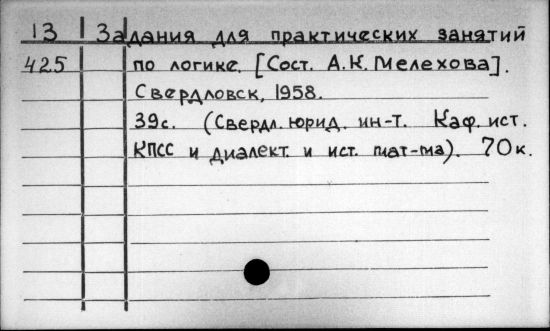 13 Задания для практических занятий
425 по логике. [Сост. А.К. Мелехова].
Свердловск, 1958.
39с. (Свердл. юрид. ин-т. Каф. ист.
КПСС и диалект. и ист. мат-ма). 70к.